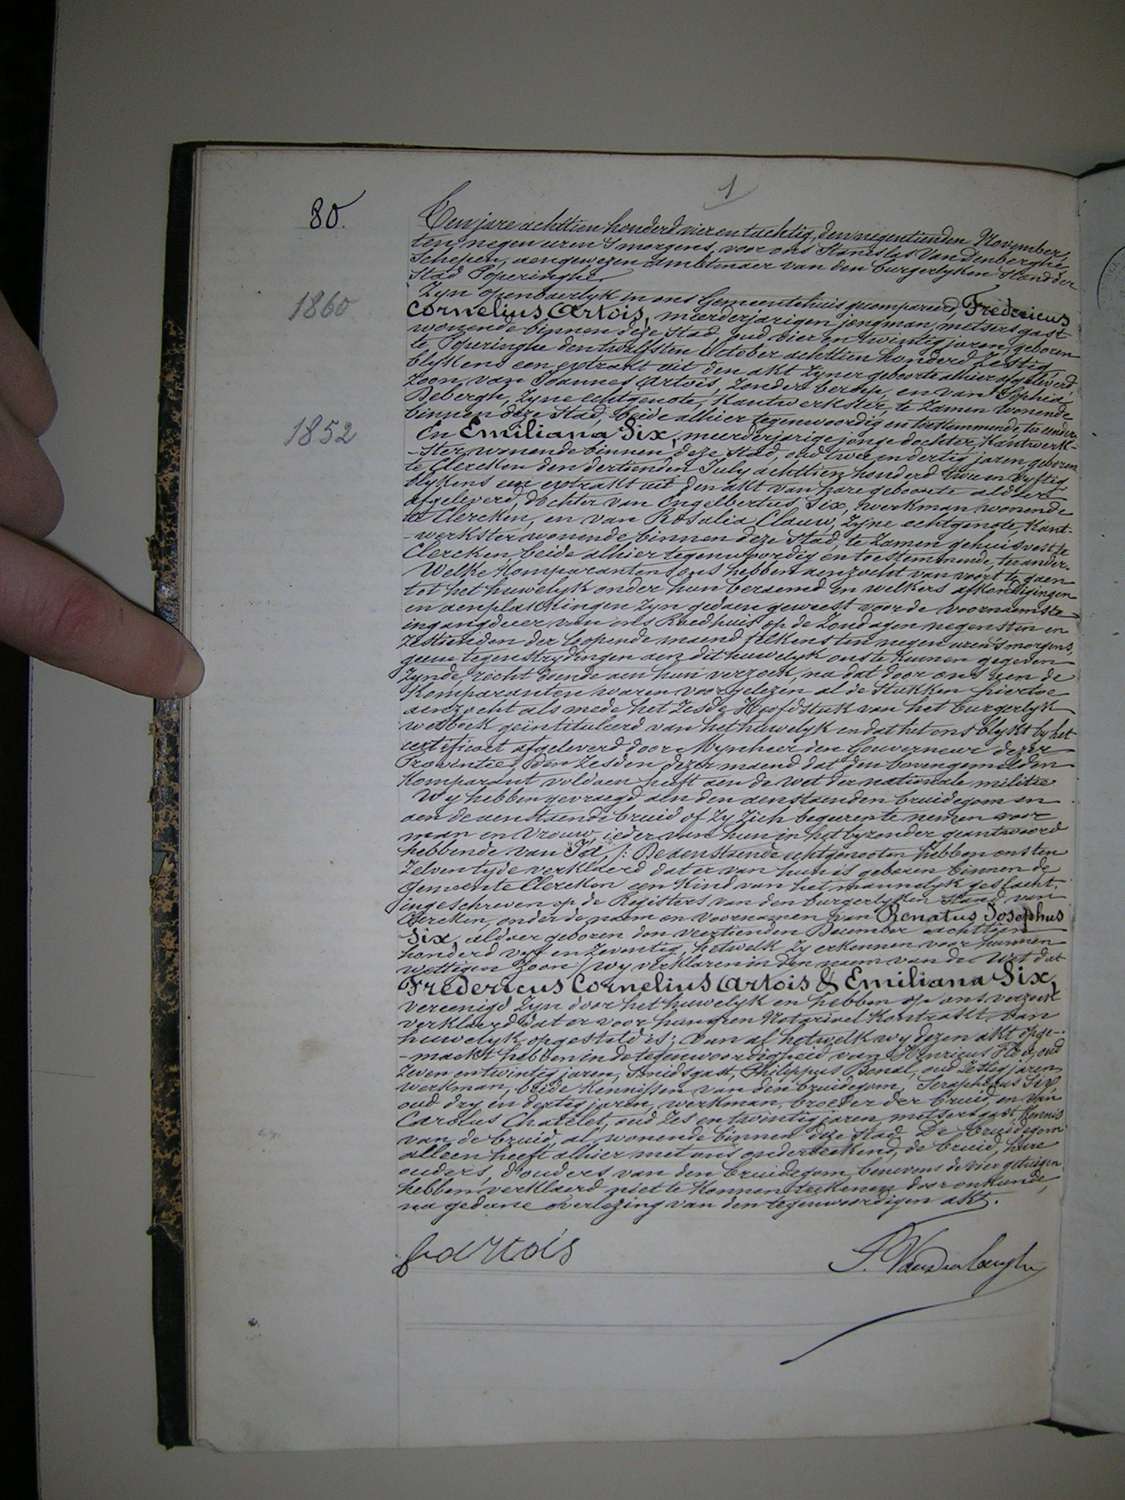 1
80.
Ten jare achttien honderd vier en tachtig, den negentienden November,
ten negen uren 's morgens, voor ons Stanislas Vandenberghe
Schepen, aangewezen Ambtenaer van den burgerlyken Stand der
Stad Poperinghe
Zyn openbaerlyk in ons Gemeentehuis gecompareerd, Fredericus
1860
Cornelius Artois, meerderjarigen jongman, metsers gast
wonende binnen deze Stad, oud vier en twintig jaren, geboren
te Poperinghe den twelfsten October achttien honderd Zestig,
blykens een extrakt uit den akt zyner geboorte alhier afgeleverd,
Zoon van Joannes Artois, zonder beroep, en van Sophia
Debergh, zyne echtgenote, Kantwerkster, te zamen wonende
binnen deze Stad, beide alhier tegenwoordig en toestemmende, ter eender
1852
En Emiliana Six, meerderjarige jonge dochter, Kantwerk-
-ster, wonende binnen deze Stad, oud twee en dertig jaren, geboren
te Clercken den dertienden July achttien honderd twee en vyftig
blykens een extrakt uit den akt van hare geboorte aldaer
afgeleverd, dochter van Engelbertus Six, werkman wonende
te Clercken, en van Rosalia Clauw, zyne echtgenote, Kant-
-werkster, wonende binnen deze Stad, te zamen gehuisvest te
Clercken, beide alhier tegenwoordig en toestemmende, ter ander.
Welke Komparanten ons hebben aenzocht van voort te gaen
tot het huwelyk onder hun beraemd en welkers afkondigingen
en aenplakkingen zyn gedaen geweest voor de voornaemste
ingangdeur van ons Raedhuis op de Zondagen negensten en
zestienden der loopende maend telkens ten negen uren 's morgens,
geene tegenstrydingen aen dit huwelyk ons te kennen gegeven
zynde, recht doende aen hun verzoek, na dat door ons aen de
Komparanten waren voorgelezen al de Stukken hiertoe
aenzocht als mede het Zesde Hoofdstuk van het burgerlyk
wetboek geïntituleerd van het huwelyk en dat het ons blykt by het
certificaet afgeleverd door Mynheer den Gouverneur dezer
Provintie, den zesden dezer maend dat den bovengemelden
Komparant voldaen heeft aen de wet der nationale militie
Wy hebben gevraegd aen den aenstaenden bruidegom en
aen de aenstaende bruid of zy zich begeeren te nemen voor
man en vrouw, ieder van hun in het byzonder geantwoord
hebbende van Ja, /: De aenstaende echtgenooten hebben ons ten
zelven tyde verklaerd dat er van hun is geboren binnen de
Gemeente Clercken een Kind van het mannelyk geslacht,
ingeschreven op de Registers van den burgerlyken Stand van
Clercken, onder de naem en voornamen van Renatus Josephus
Six, aldaer geboren den veertienden December achttien
honderd vyf en zeventig, hetwelk zy erkennen voor hunnen
wettigen zoon / wy verklaren in den naem van de Wet dat
Fredericus Cornelius Artois & Emiliana Six,
vereenigd zyn door het huwelyk en hebben op ons verzoek
verklaerd dat er voor hun geen Notarieel Kontrakt van
huwelyk opgesteld is; Van al hetwelk wy dezen akt opge-
-maekt hebben in de tegenwoordigheid van Henricus oud
zeven en twintig jaren, Smidsgast, Philippus Bonel, oud zestig jaren,
werkman, beide Kennissen van den bruidegom, Seraphinus Six,
oud dry en dertig jaren, werkman, broeder der bruid, en van
Carolus Chatelet, oud zes en twintig jaren, metsersgast, Kennis
van de bruid, al wonende binnen deze Stad. De bruidegom
alleen heeft alhier met ons onderteekend, de bruid, hare
ouders, d'ouders van den bruidegom, benevens de vier getuigen
hebben verklaerd niet te Konnen teekenen door onkunde,
na gedane overlezing van den tegenwoordigen akt.
f artois
S. Vandenberghe